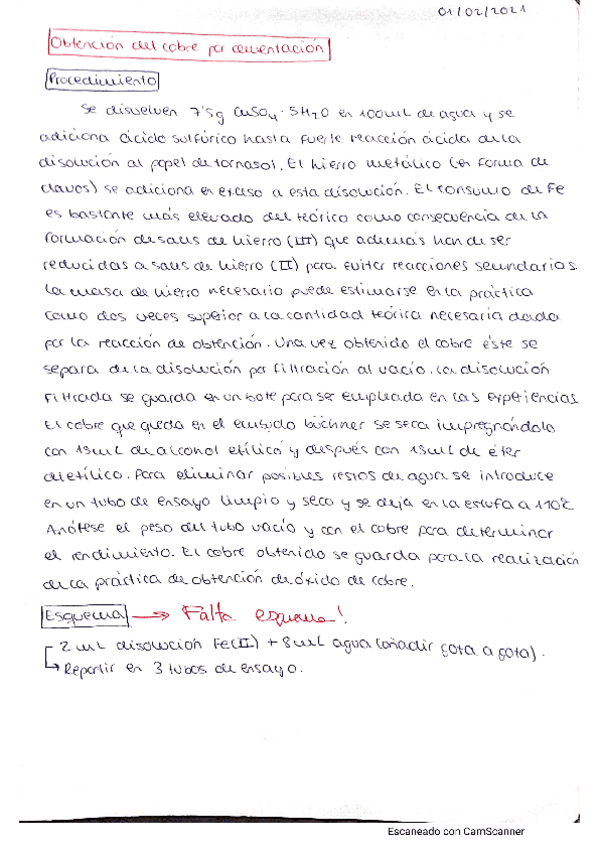 01/02/2021
Obtención del cobre por cementación
Procedimiento
Se disuelven 7'5g CuSO4·5H2O en 100mL de agua y se
adiciona ácido sulfúrico hasta fuerte reacción ácida de la
disolución al papel de tornasol. El hierro metálico (en forma de
clavos) se adiciona en exceso a esta disolución. El consumo de Fe
es bastante más elevado del teórico como consecuencia de la
formación de sales de hierro (III) que además han de ser
reducidas a sales de hierro (II) para evitar reacciones secundarias.
La masa de hierro necesario puede estimarse en la práctica
como dos veces superior a la cantidad teórica necesaria dada
por la reacción de obtención. Una vez obtenido el cobre éste se
separa de la disolución por filtración al vacío. La disolución
filtrada se guarda en un bote para ser empleada en las experiencias.
El cobre que queda en el embudo büchner se seca impregnándolo
con 15mL de alcohol etílico y después con 15mL de éter
dietílico. Para eliminar posibles restos de agua se introduce
en un tubo de ensayo limpio y seco y se deja en la estufa a 110ºC.
Anótese el peso del tubo vacío y con el cobre para determinar
el rendimiento. El cobre obtenido se guarda para la realización
de la práctica de obtención de óxido de cobre.
Esquema → Falta esquema!
2 mL disolución Fe(II) + 8mL agua (añadir gota a gota).
↳ Repartir en 3 tubos de ensayo.
Escaneado con CamScanner